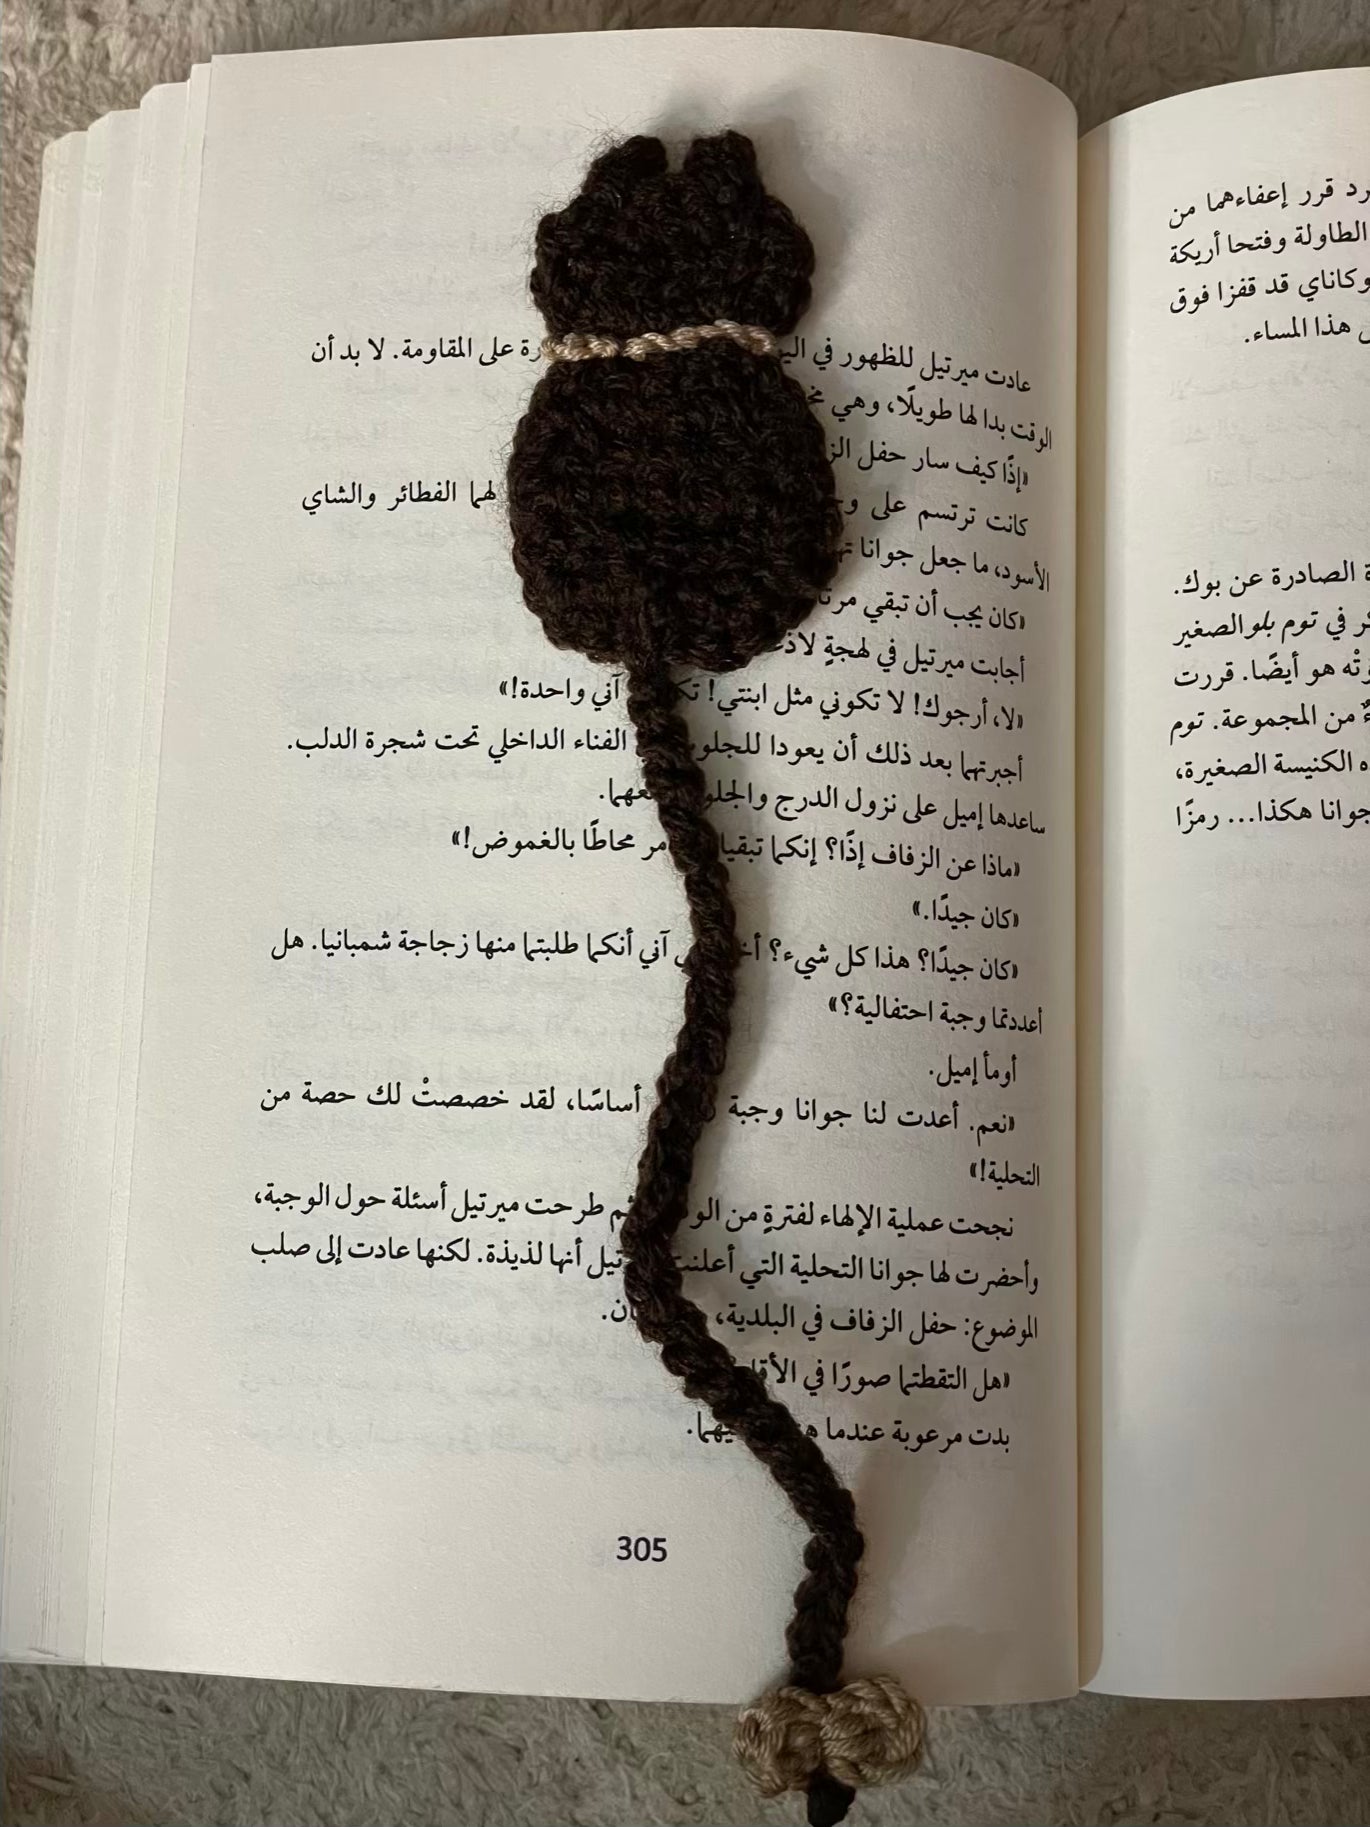 عادت ميرتيل للظهور في رة على المقاومة. لا بد أن
الوقت بدا لها طويلًا، وهي
«إذًا كيف سار حفل
كانت ترتسم على لهما الفطائر والشاي
الأسود، ما جعل جوانا
«كان يجب أن تبقي
أجابت ميرتيل في لهجةٍ
«لا، أرجوك! لا تكوني مثل ابنتي! آني واحدة!»
أجبرتهما بعد ذلك أن يعودا الفناء الداخلي تحت شجرة الدلب.
ساعدها إميل على نزول الدرج
«ماذا عن الزفاف إذًا؟ إنكما محاطًا بالغموض!»
«كان جيدًا.»
«كان جيدًا؟ هذا كل شيء؟ آني أنكما طلبتما منها زجاجة شمبانيا. هل
أعددتما وجبة احتفالية؟»
أومأ إميل.
«نعم. أعدت لنا جوانا وجبة أساسًا، لقد خصصتْ لك حصة من
التحلية!»
نجحت عملية الإلهاء لفترةٍ من طرحت ميرتيل أسئلة حول الوجبة،
وأحضرت لها جوانا التحلية التي أنها لذيذة. لكنها عادت إلى صلب
الموضوع: حفل الزفاف في البلدية،
«هل التقطتما صورًا في
بدت مرعوبة عندما
305
رد قرر إعفاءهما من
الطاولة وفتحا أريكة
وكاناي قد قفزا فوق
هذا المساء.
ة الصادرة عن بوك.
في توم بلو الصغير
هو أيضًا. قررت
من المجموعة. توم
الكنيسة الصغيرة،
جوانا هكذا... رمزًا